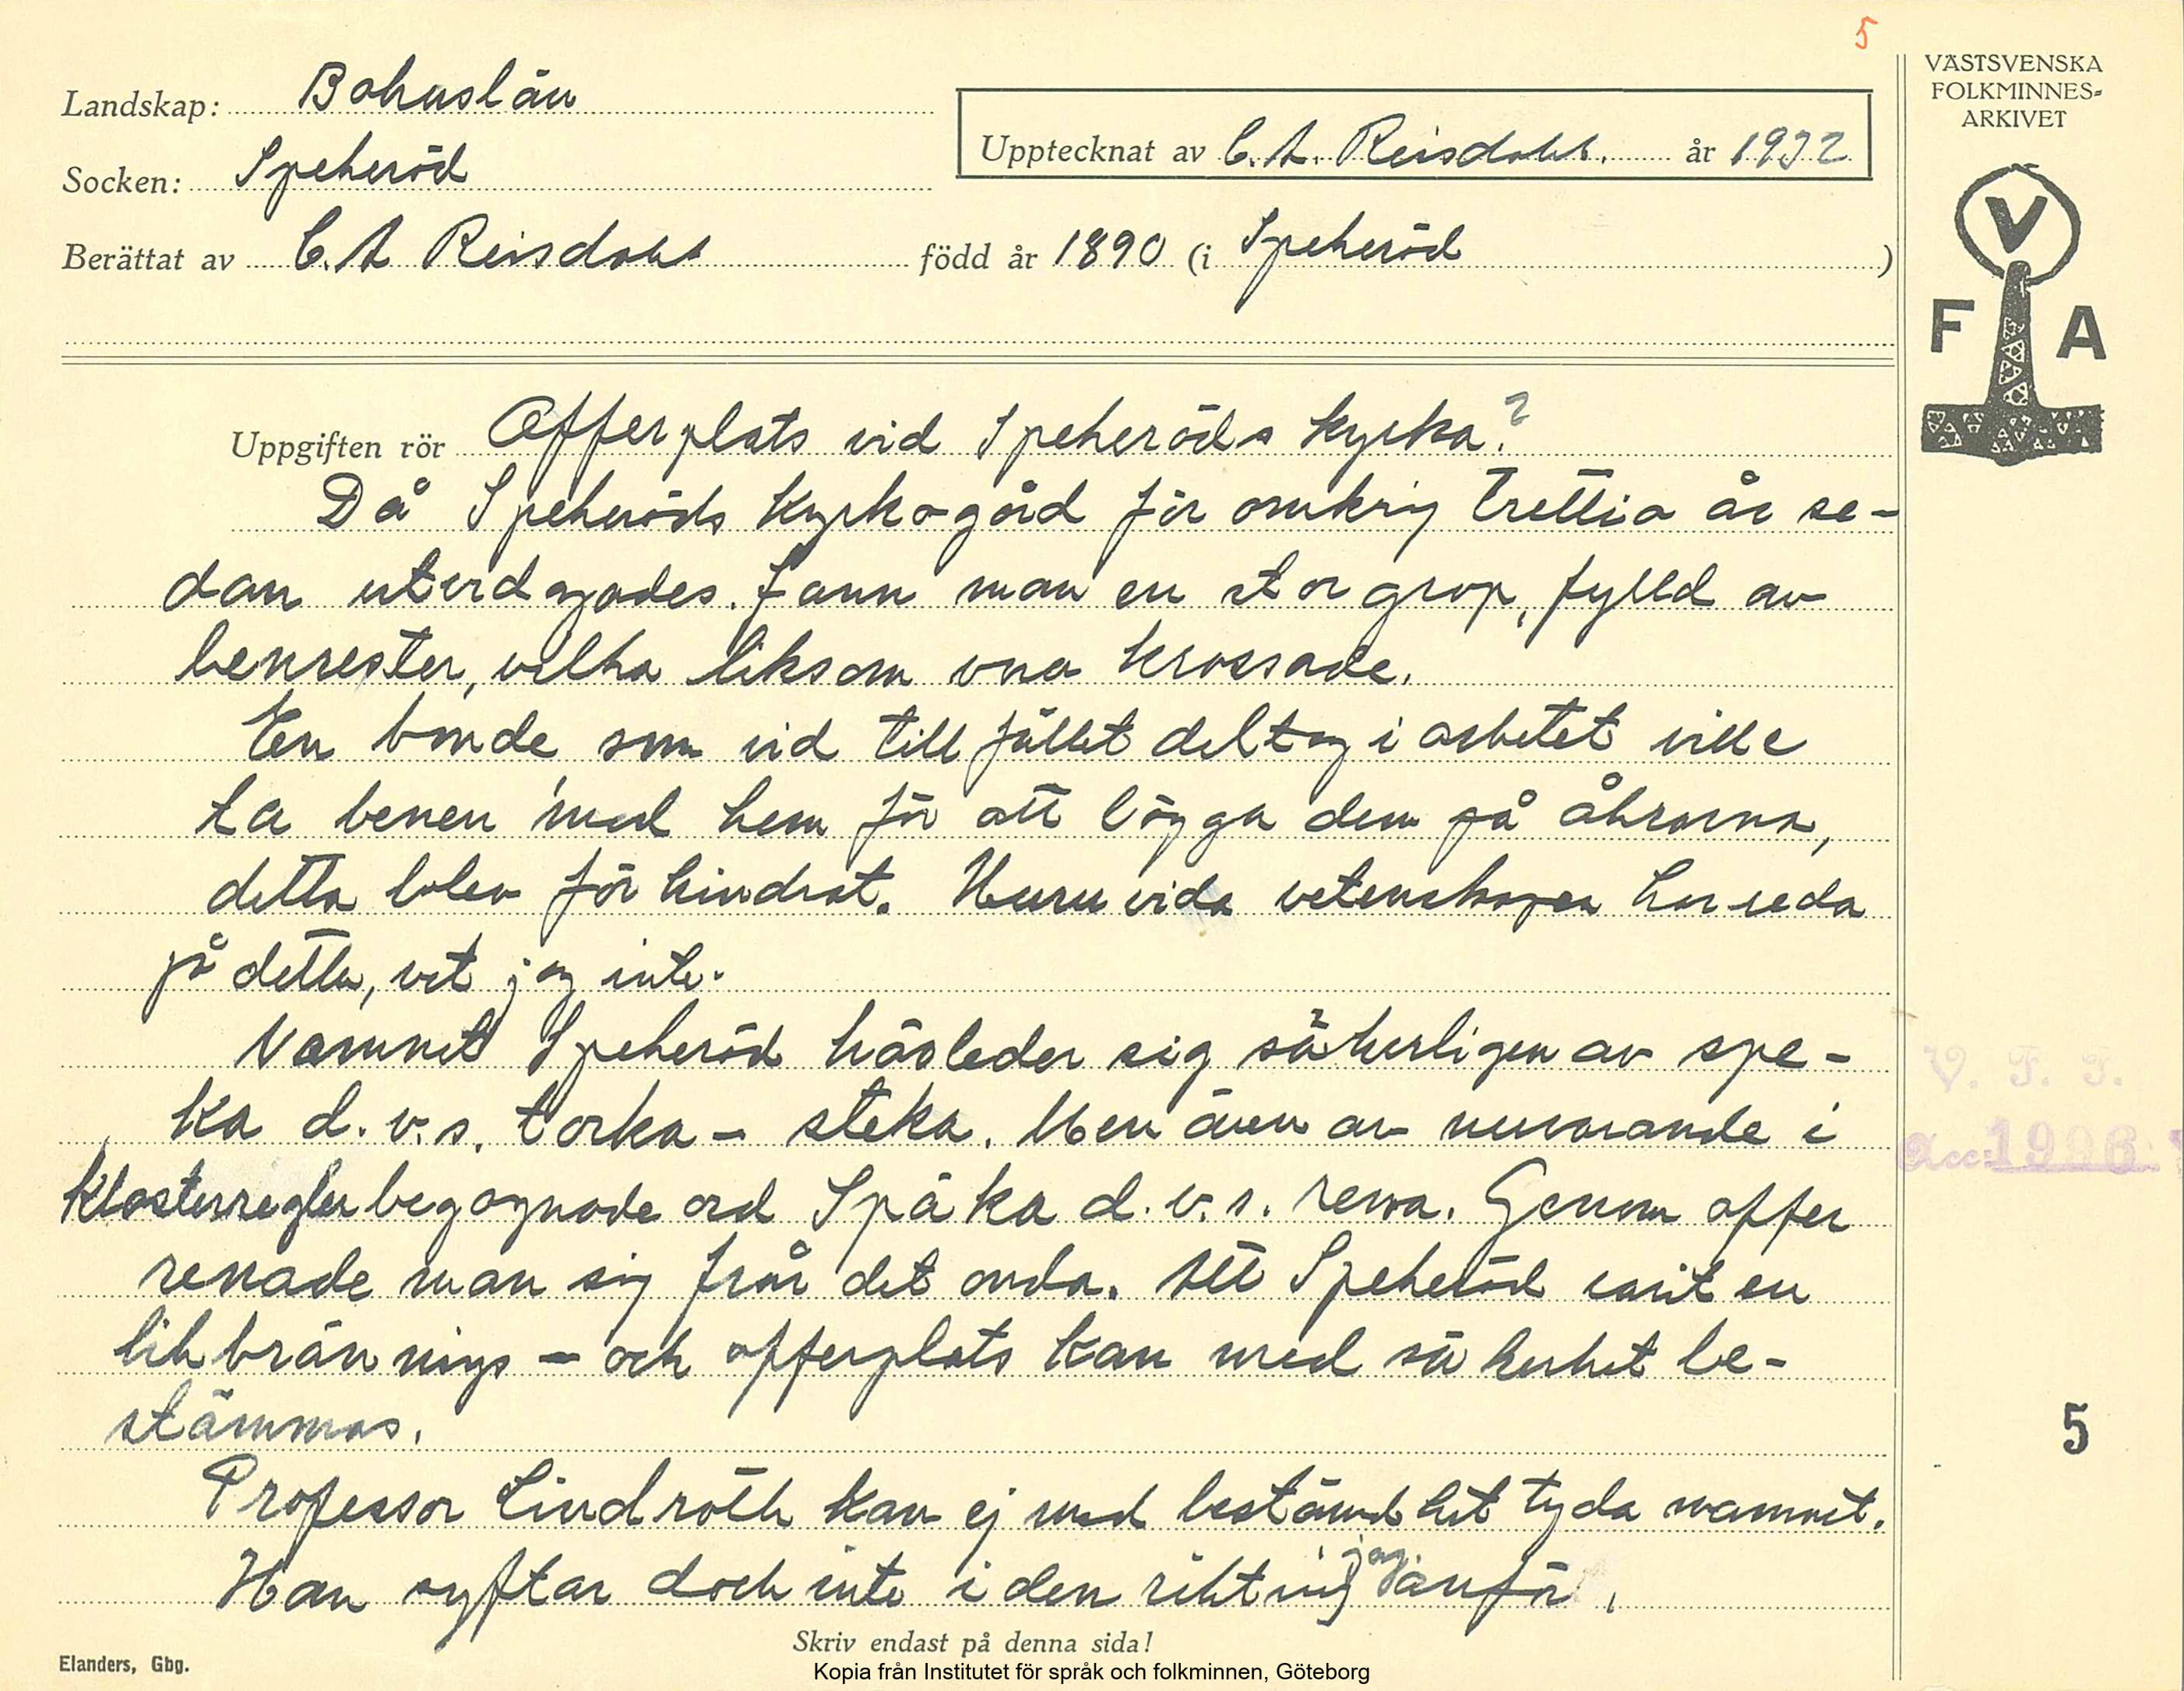 5
VÄSTSVENSKA
FOLKMINNES-
ARKIVET
Landskap: Bohuslän
Upptecknat av C. A. Reisdahl. år 1932
Socken: Spekeröd
Berättat av C. A Reisdahl född år 1890 (i Spekeröd )
V
F A
Uppgiften rör Offerplats vid Spekeröds kyrka?
Då Spekeröds kyrkogård för omkring trettio år se-
dan utvidgades. fann man en stor grop, fylld av
benrester, vilka liksom voro krossade.
En bonde som vid tillfället deltog i arbetet ville
ta benen med hem för att lägga dem på åkrarna,
detta blev förhindrat. Huruvida vetenskapen har reda
på detta, vet jag inte.
Namnet Spekeröd härleder sig säkerligen av spe-
ka d. v. s. torka - steka. Men även av nuvarande i
klosterregler begagnade ord Späka d. v. s. rena. Genom offer
renade man sig från det onda. Att Spekeröd varit en
likbrännings - och offerplats kan med säkerhet be-
stämmas.
Professor Lindroth kan ej med bestämdhet tyda namnet.
Han syftar dock inte i den riktning jag anför.
V. F. F.
Acc: 1996
5
Skriv endast på denna sida!
Elanders, Gbg.
Kopia från Institutet för språk och folkminnen, Göteborg